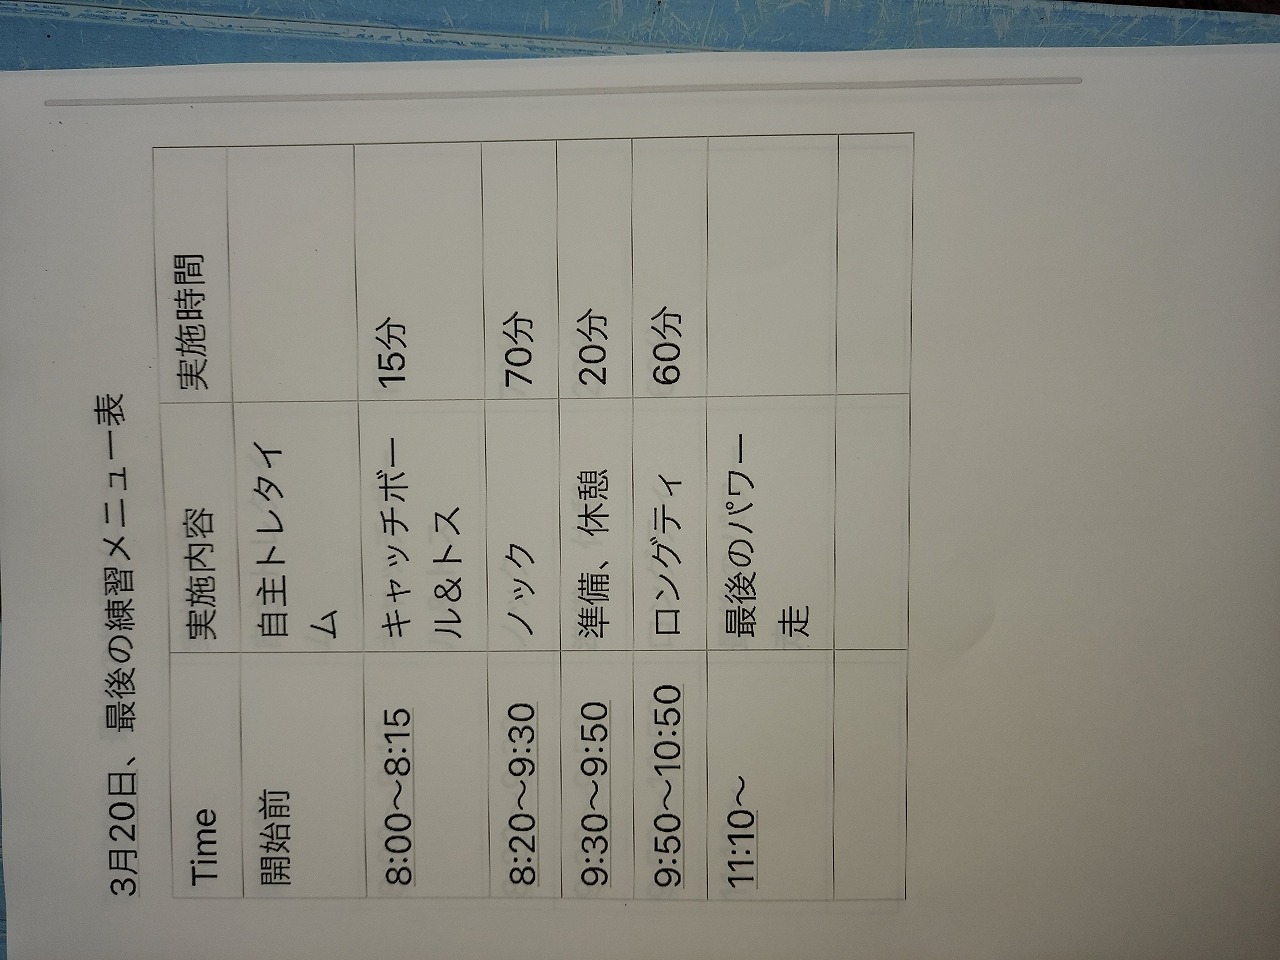 3月20日、最後の練習メニュー表
Time 実施内容 実施時間
開始前 自主トレタイ
ム
8:00〜8:15 キャッチボー 15分
ル&トス
8:20〜9:30 ノック 70分
9:30〜9:50 準備、休憩 20分
9:50〜10:50 ロングティ 60分
11:10〜 最後のパワー
走